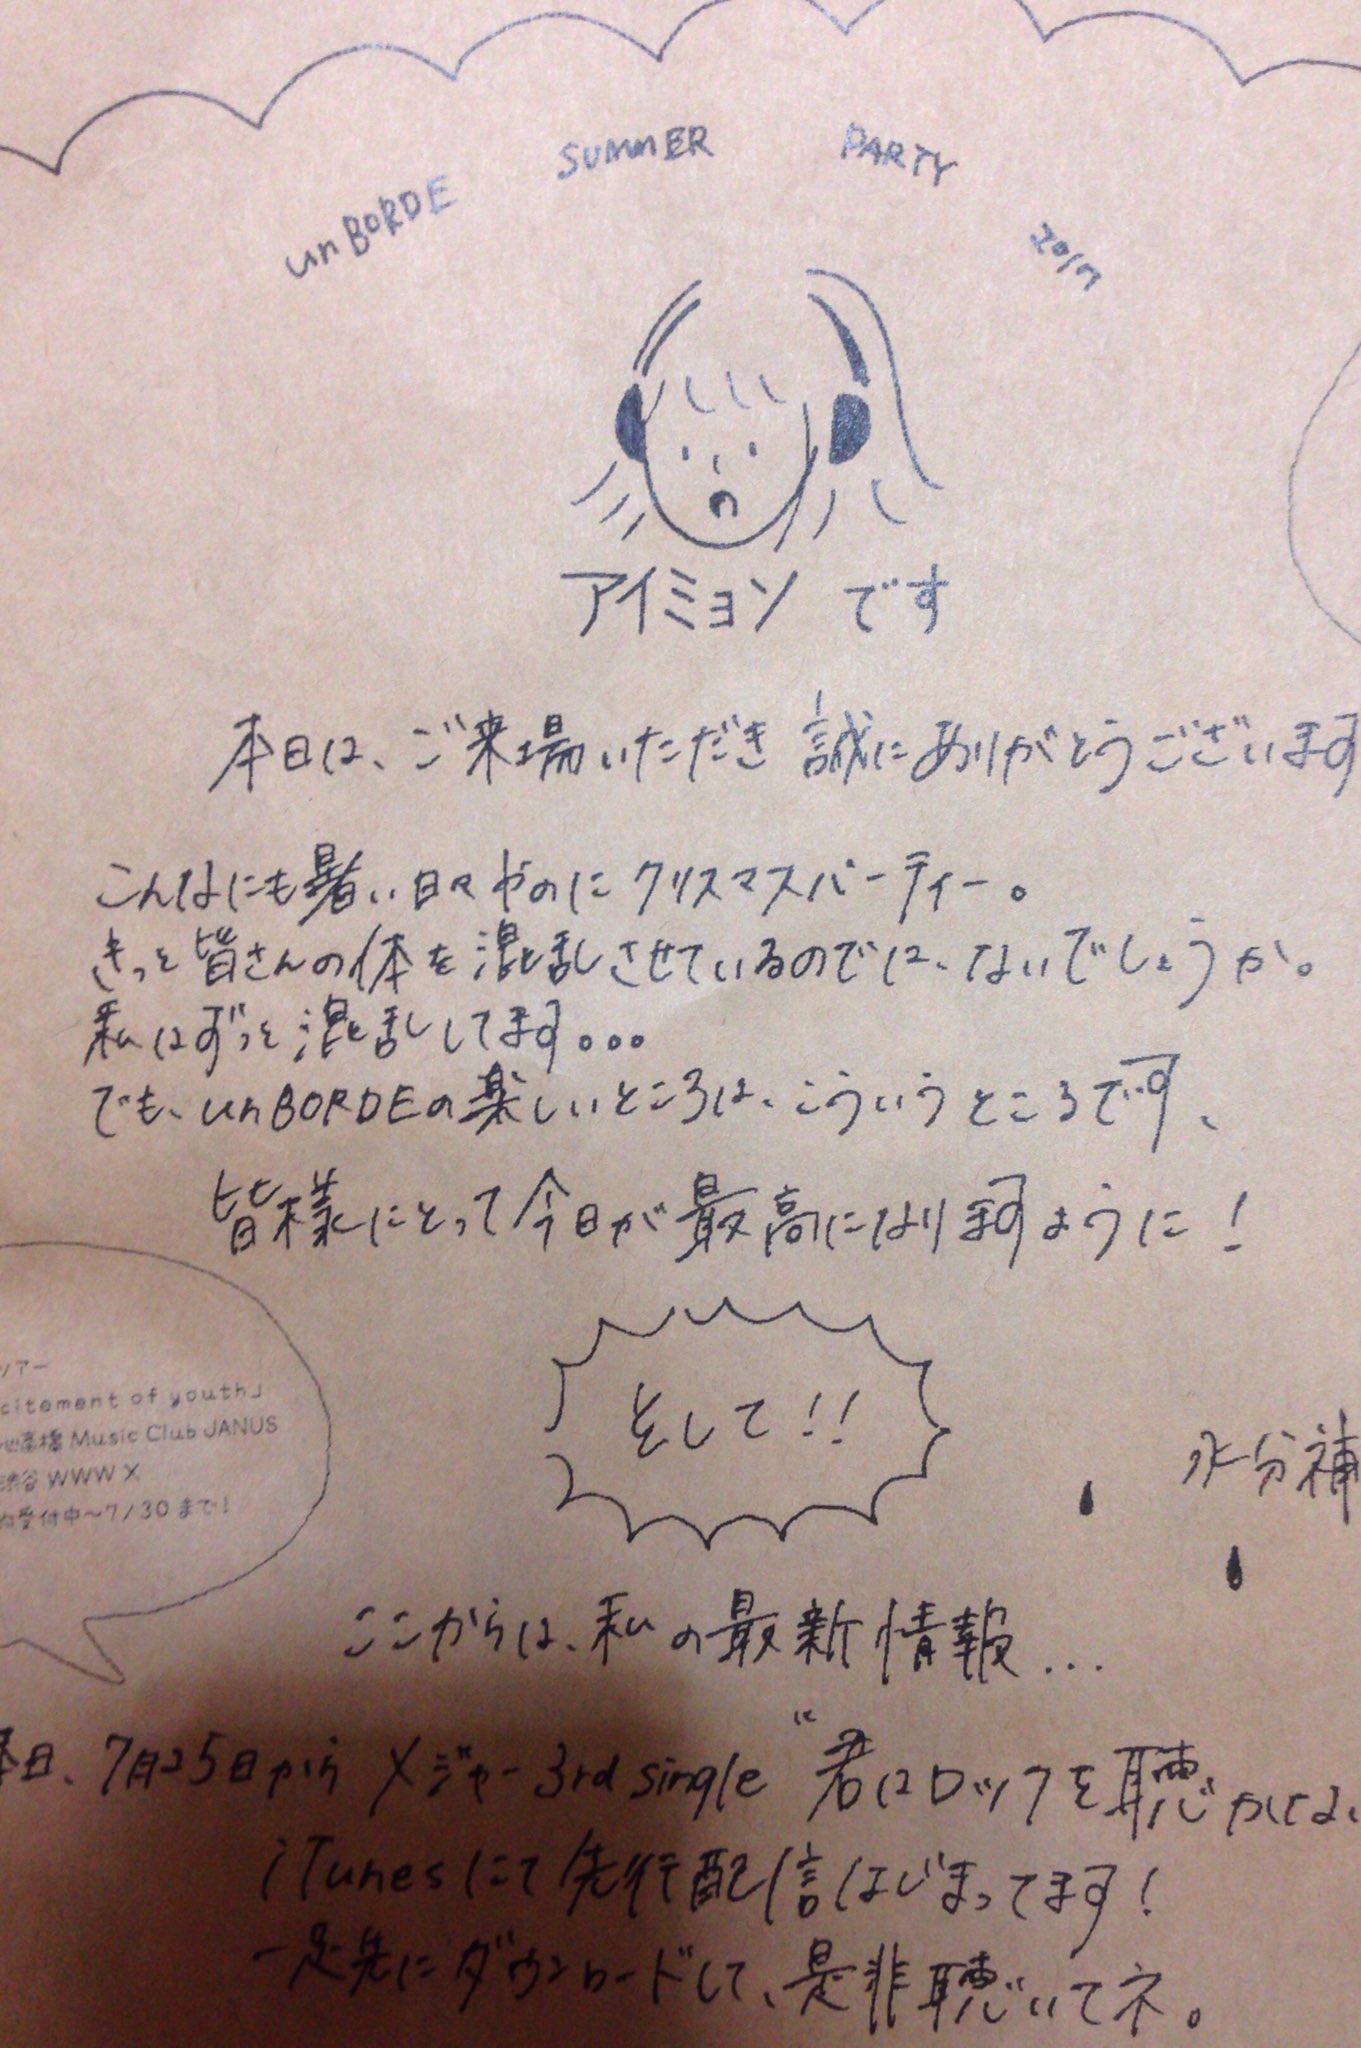 unBORDE SUMMER PARTY 2017
アイミョン です
本日は、ご来場いただき 誠にありがとうございます
こんなにも暑い日々やのにクリスマスパーティー。
きっと皆さんの体を混乱させているのでは、ないでしょうか。
私はずっと混乱してます。。。
でも、unBORDEの楽しいところは、こういうところです、
皆様にとって今日が最高になりますように!
ツアー
citement of youth」
Music Club JANUS
渋谷 WWW X
受付中〜7/30まで!
そして!!
水分補
ここからは、私の最新情報...
本日、7月25日から メジャー 3rd single "君はロックを聴かせない
iTunesにて先行配信はじまってます!
一足先にダウンロードして、是非聴いてネ。